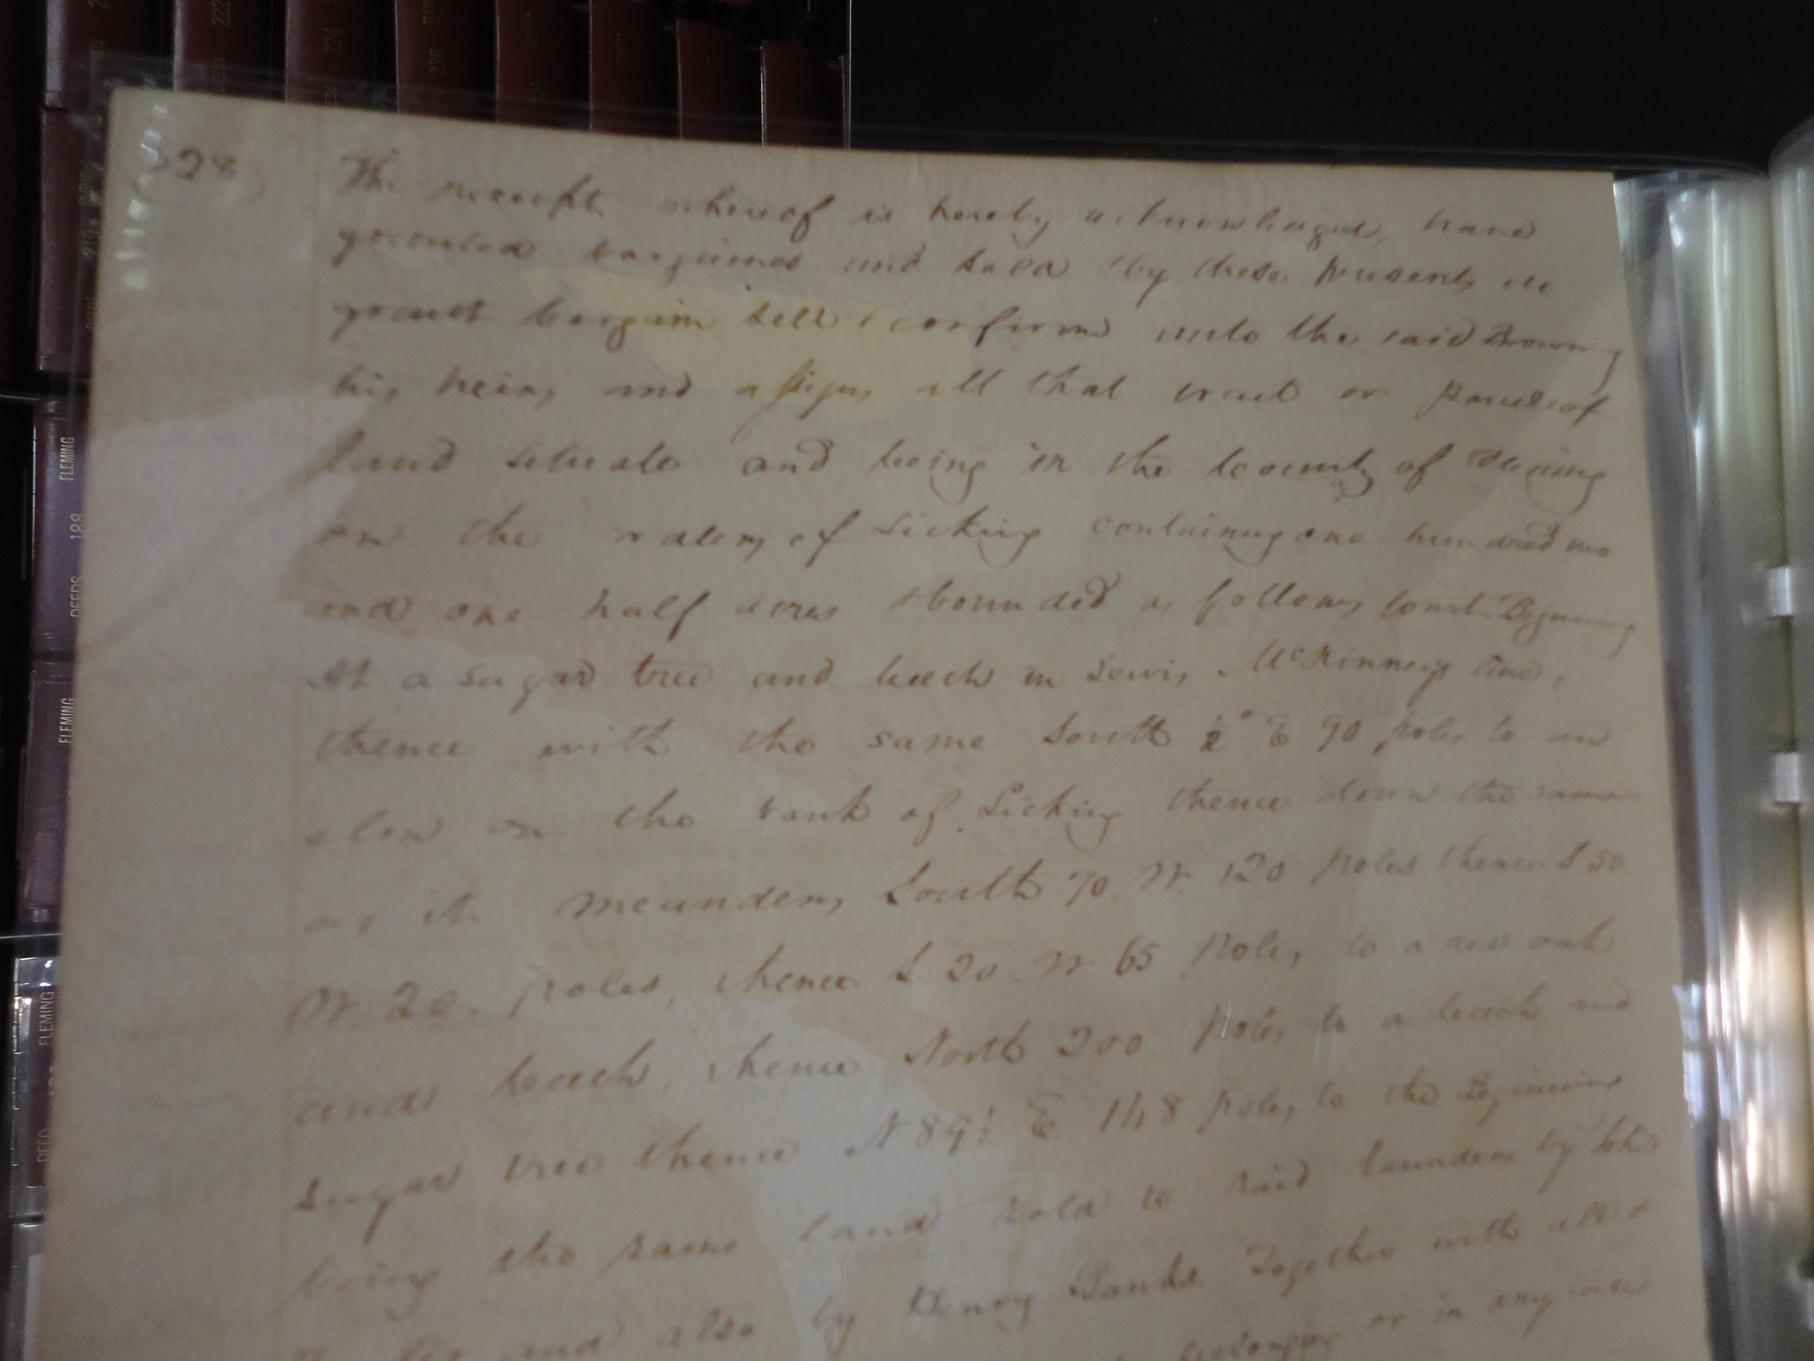 222
224
226
FLEMING
DEEDS 188
FLEMING
FLEMING
The receipt whereof is hereby acknowledged, have
granted bargained and sold & by these presents do
grant bargain sell & confirm unto the said Browning
his heirs and assigns all that tract or parcel of
land situate and being in the County of Fleming
on the waters of Licking containing one hundred two
and one half acres & bounded as follows towit Begining
At a sugar tree and beech in Lewis McKinneys line,
thence with the same South ½° E 90 poles to an
elm on the bank of Licking thence down the same
as its meanders South 70. W. 120 poles thence S 50
W. 20. poles, thence S. 20. W 65 poles to a red oak
and beech, thence North 200 poles to a beech and
sugar tree thence N 89½ E. 148 poles to the Begining
being the same land sold to said Saunders by
and also by Henry Banks. Together with all &
belonging or in any wise